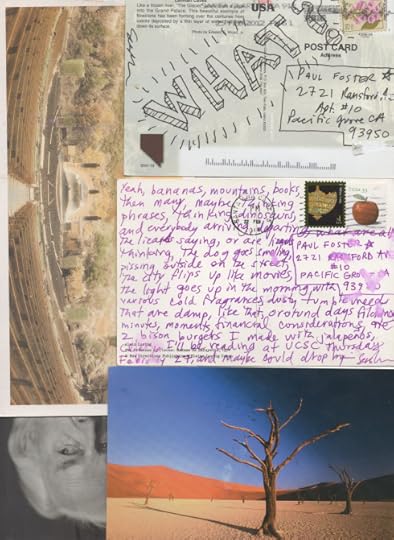 Like a frozen river, "The Glacier"
into the Grand Palace. This beautiful example of
flowstone has been forming over the centuries from
calcite deposited by a thin layer of water
down its surface.
Photo by Edward L. Wisner
USA
POST CARD
Address
WHAT
PAUL FOSTER
2721 Ransford
Apt. #10
Pacific Grove CA
93950
Yeah, bananas, mountains, books,
then many, maybe
phrases, thinking dinosaurs,
and everybody arriving,
the lizards saying, or are lizards
thinking. The dog goes smiling,
pissing outside on the street,
the city flips up like movies,
the light goes up in the morning with
various cold fragrances dusty tumbleweed
that are damp, like that, orotund days
minutes, moments, financial considerations, the
2 bison burgers I make with jalapeños,
I'll be reading at UCSC Thursday
27, and maybe could drop by
PAUL FOSTER
2721
#10
PACIFIC GROVE CA
93950